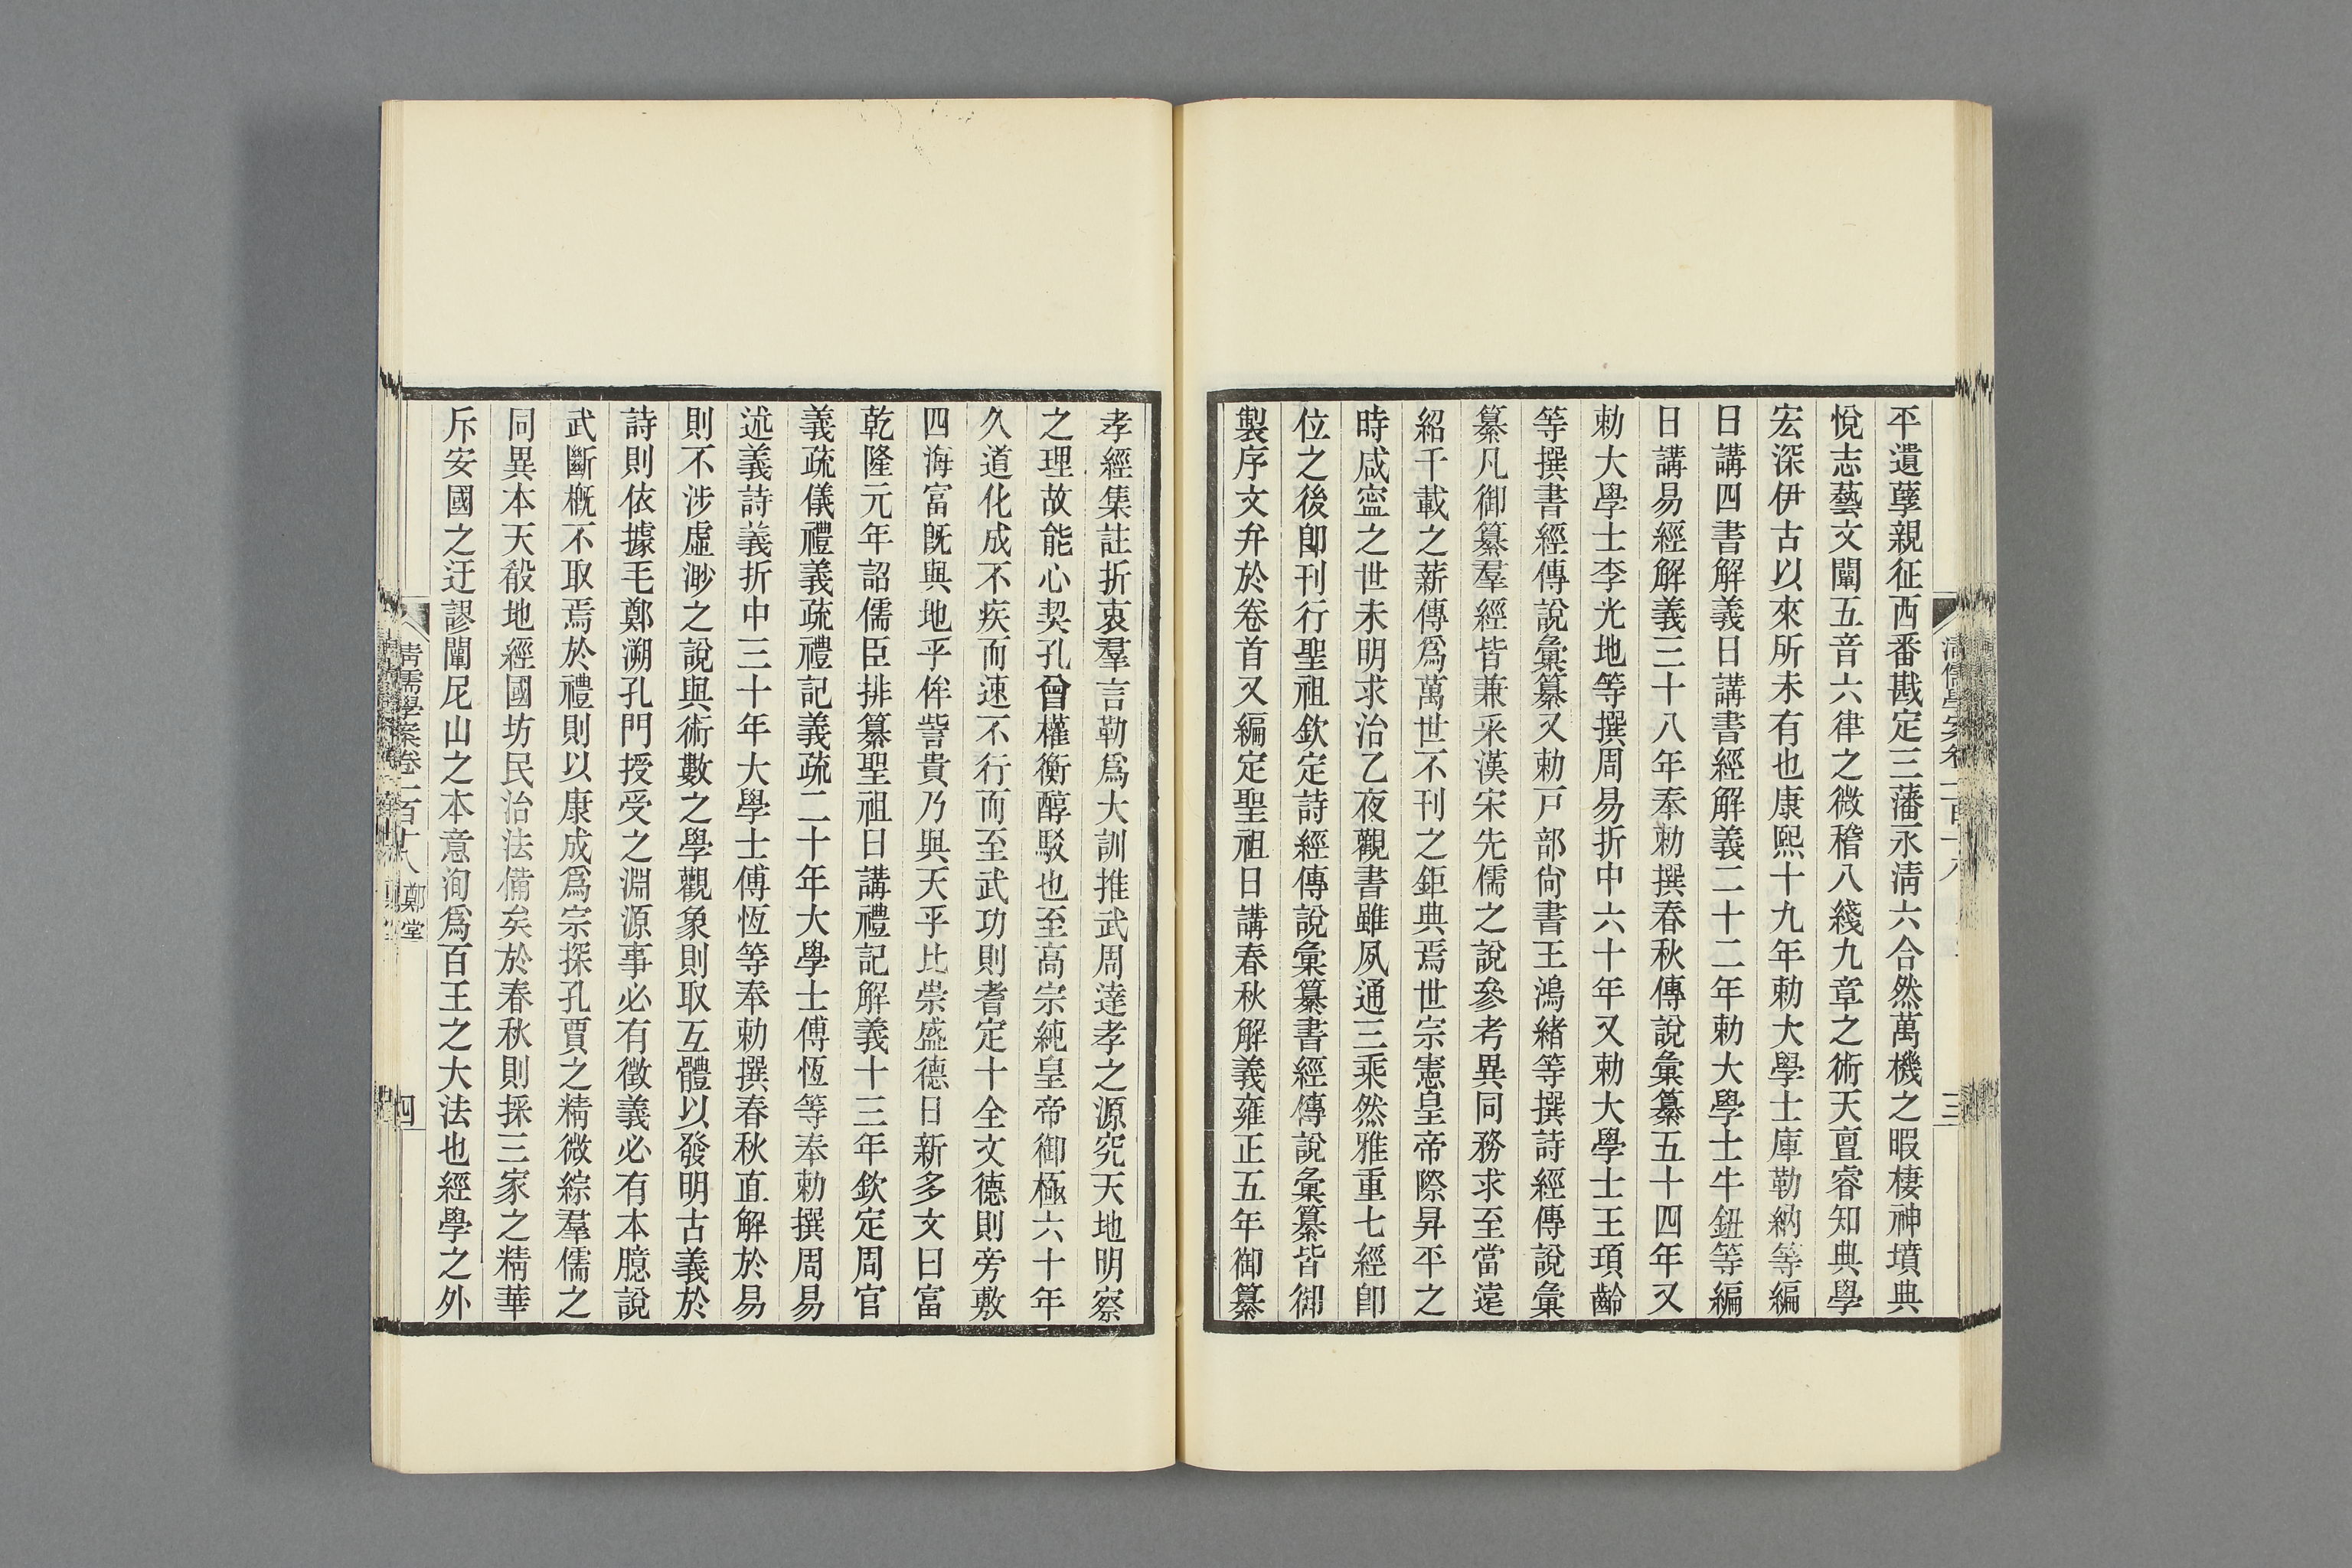 平遺孽親征西番戡定三藩永清六合然萬機之暇棲神墳典
悅志藝文闡五音六律之微稽八綫九章之術天亶睿知典學
宏深伊古以來所未有也康熙十九年勅大學士庫勒納等編
日講四書解義日講書經解義二十二年勅大學士牛鈕等編
日講易經解義三十八年奉勅撰春秋傳說彙纂五十四年又
勅大學士李光地等撰周易折中六十年又勅大學士王頊齡
等撰書經傳說彙纂又勅戸部尙書王鴻緒等撰詩經傳說彙
纂凡御纂羣經皆兼采漢宋先儒之說參考異同務求至當遠
紹千載之薪傳爲萬世不刊之鉅典焉世宗憲皇帝際昇平之
時咸寍之世未明求治乙夜觀書雖夙通三乘然雅重七經卽
位之後卽刊行聖祖欽定詩經傳說彙纂書經傳說彙纂皆御
製序文弁於卷首又編定聖祖日講春秋解義雍正五年御纂
清儒學案卷一百十八
三
孝經集註折衷羣言勒爲大訓推武周達孝之源究天地明察
之理故能心契孔曾權衡醇駁也至高宗純皇帝御極六十年
久道化成不疾而速不行而至武功則耆定十全文德則旁敷
四海富旣與地乎侔訾貴乃與天乎比崇盛德日新多文曰富
乾隆元年詔儒臣排纂聖祖日講禮記解義十三年欽定周官
義疏儀禮義疏禮記義疏二十年大學士傅恆等奉勅撰周易
述義詩義折中三十年大學士傅恆等奉勅撰春秋直解於易
則不涉虛渺之說與術數之學觀象則取互體以發明古義於
詩則依據毛鄭溯孔門授受之淵源事必有徵義必有本臆說
武斷槪不取焉於禮則以康成爲宗探孔賈之精微綜羣儒之
同異本天殽地經國坊民治法備矣於春秋則採三家之精華
斥安國之迂謬闡尼山之本意洵爲百王之大法也經學之外
清儒學案卷一百十八 鄭堂
四